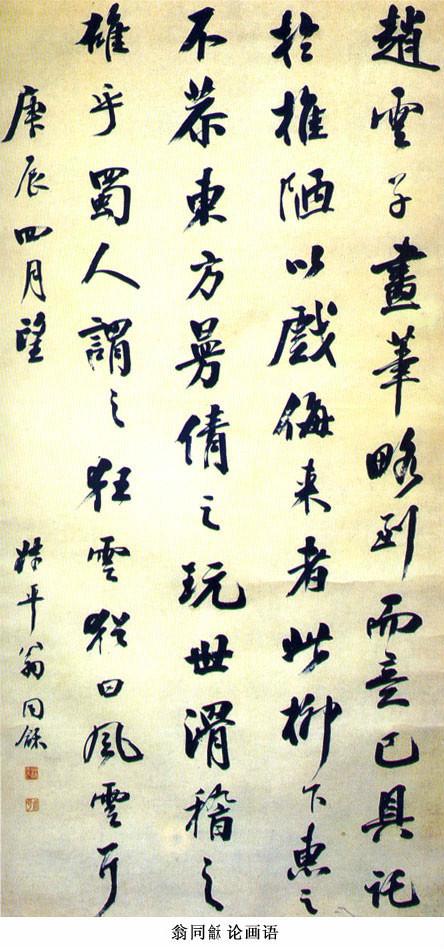 趙雲子畫筆略到而意已具託
於椎陋以戲侮来者此柳下惠之
不恭東方曼倩之玩世滑稽之
雄乎蜀人謂之狂雲猶曰風雲耳
庚辰四月望 叔平翁同龢
翁同龢 论画语